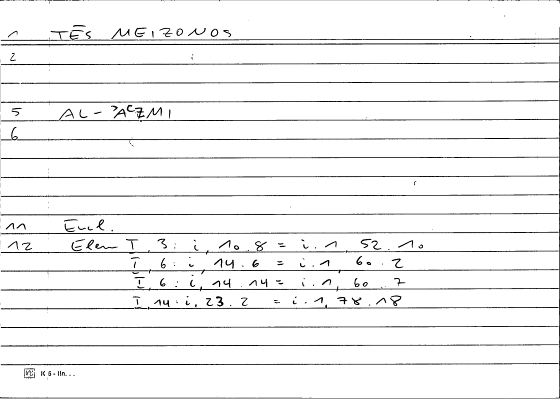 1 TĒS MEIZONOS
2
5 AL-ʾAʿẒMI
6
11 Eucl.
12 Elem I, 3 : i, 10.8 = i.1, 52.10
I, 6 : i, 14.6 = i.1, 60.2
I, 6 : i, 14.14 = i.1, 60.7
I, 14 : i, 23.2 = i.1, 78.18